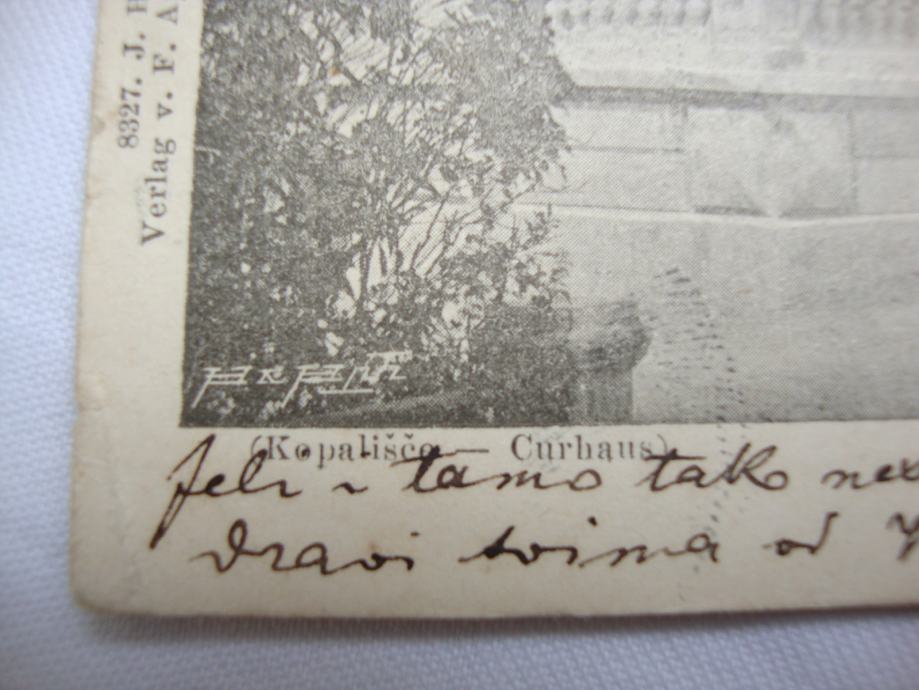 8327. J.
Verlag v. F. A
(Kopališče — Curhaus)
Jeli i tamo tako
dravi svima od